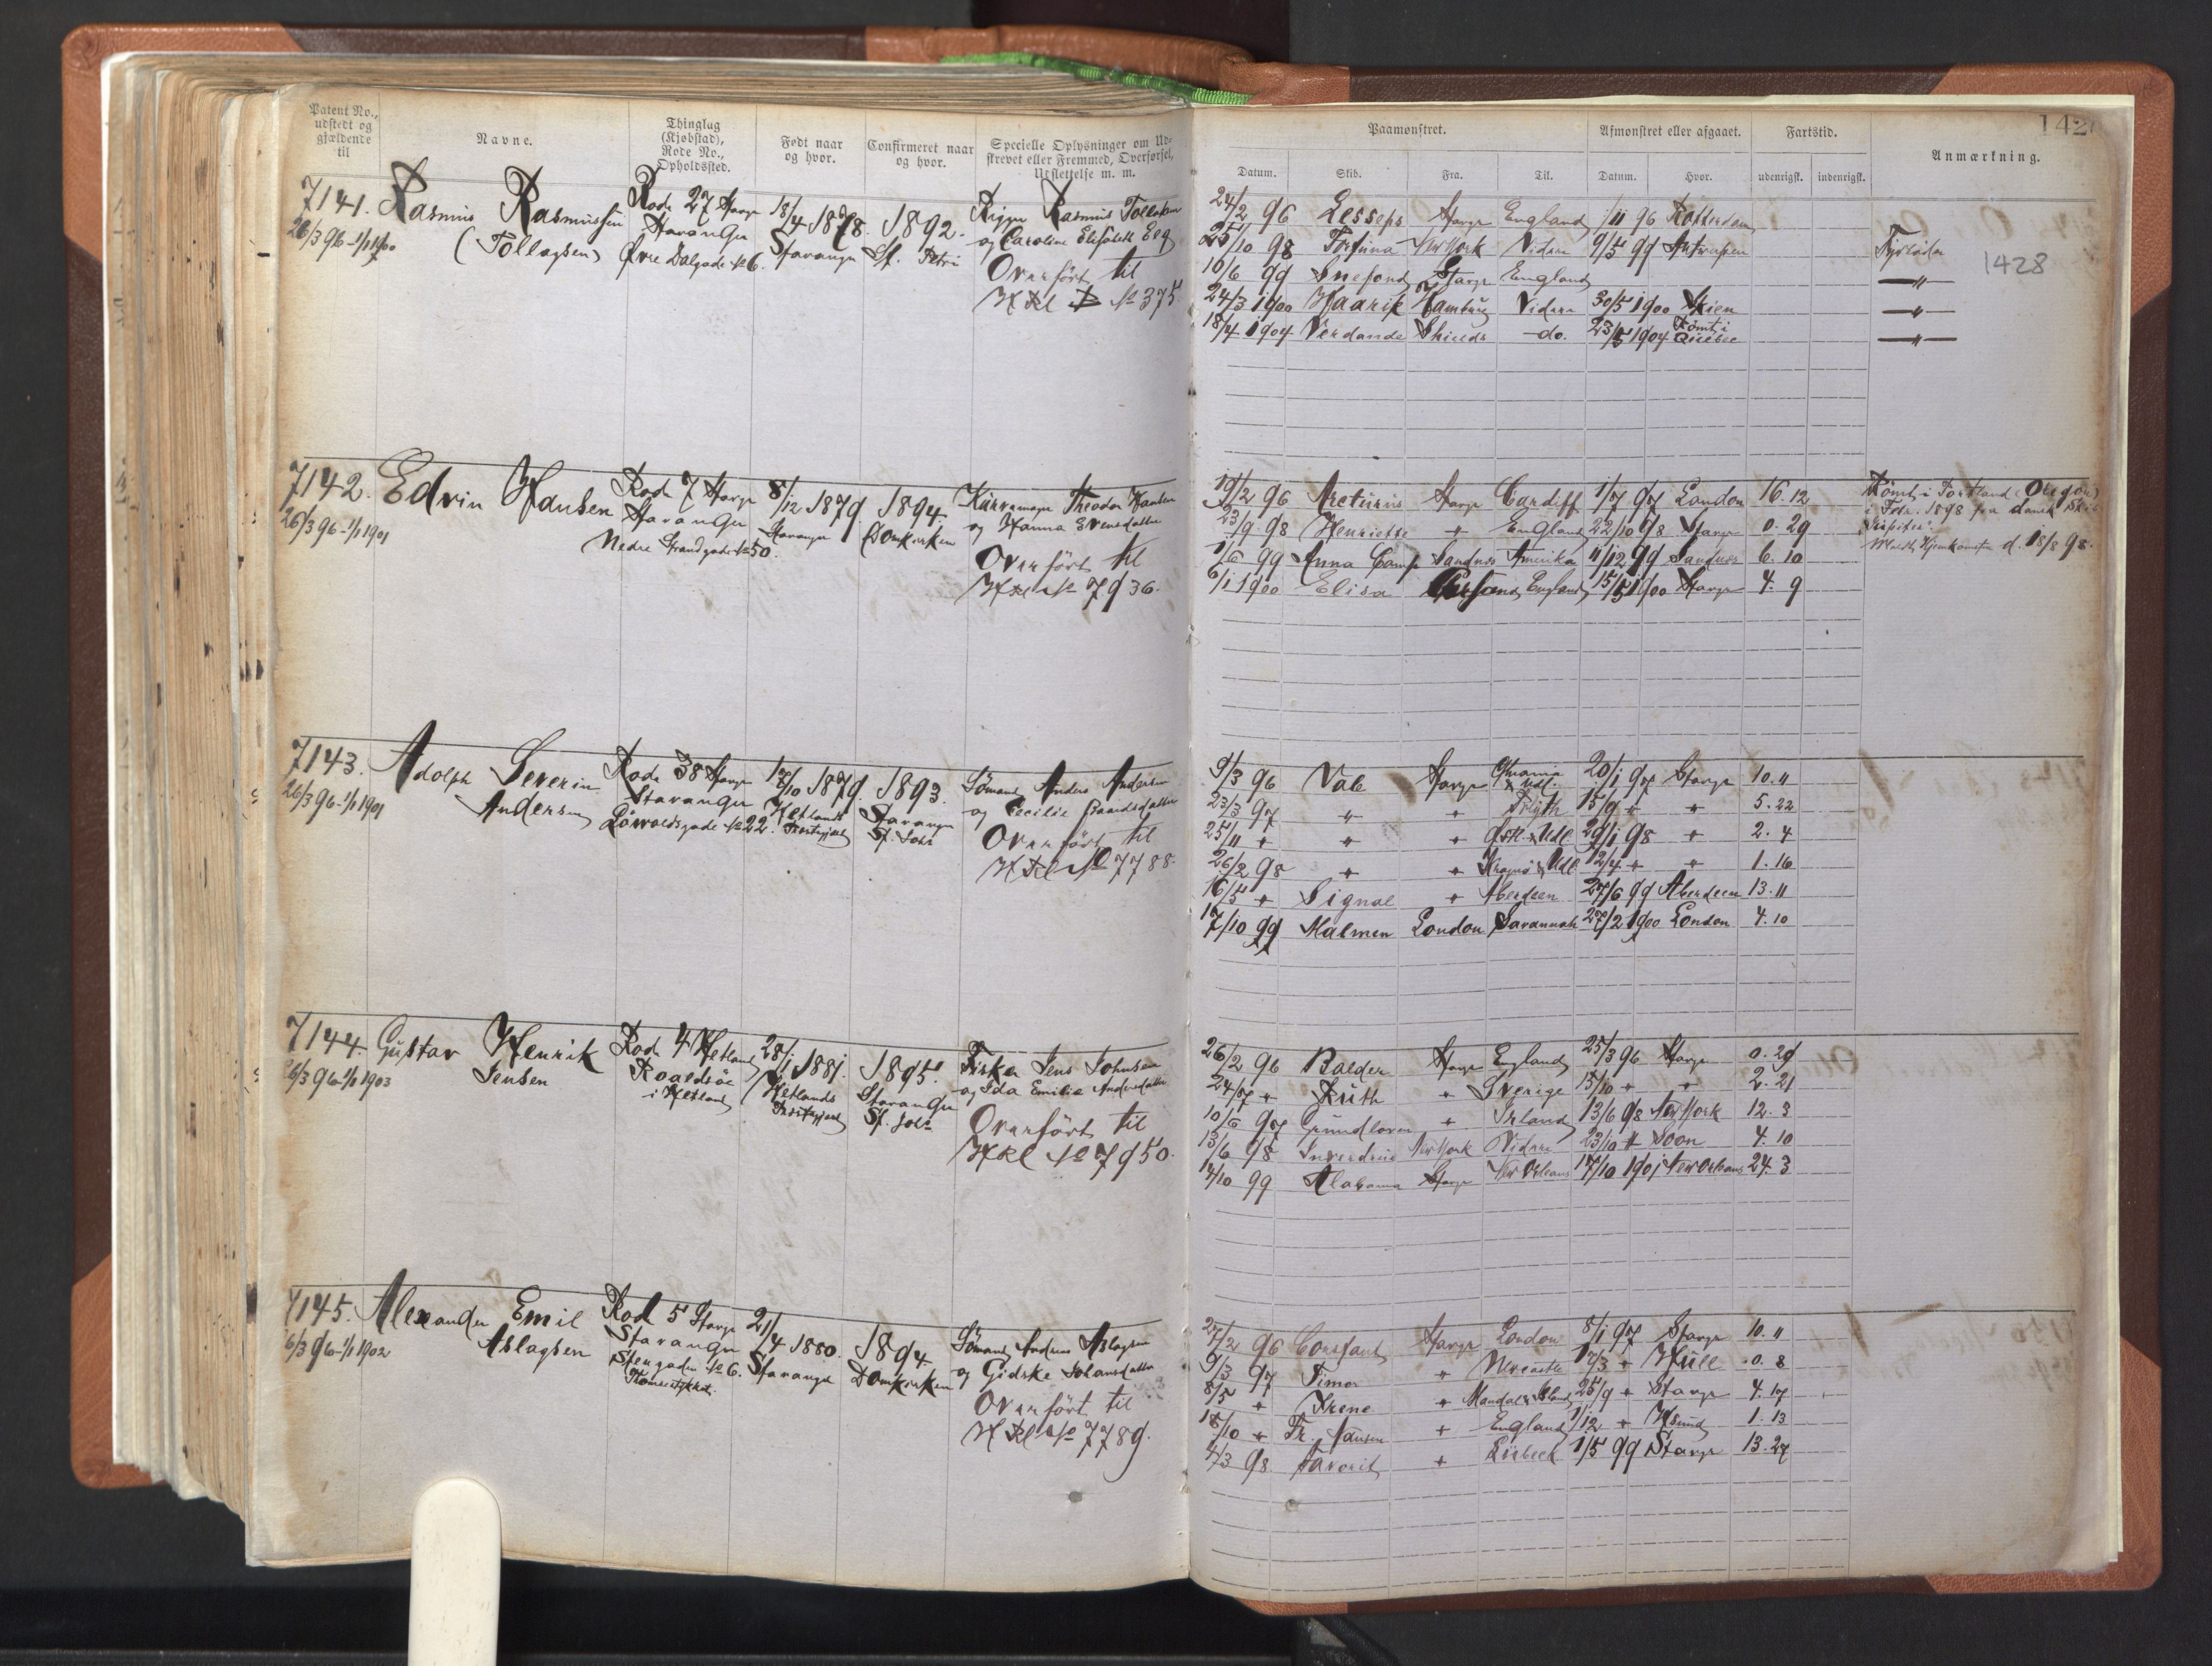 Patent No., udstedt og gjældende til
Navne.
Thinglag (Kjøbstad), Rode No., Opholdssted.
Født naar og hvor.
Confirmeret naar og hvor.
Specielle Oplysninger om Udskrevet eller Fremmed, Overførsel, Udslettelse m. m.
7141. Rasmus Rasmussen Rode 27 Stavgr 18/4 1878. 1892. Rigger Rasmus Tollaksen
26/3 96-1/1 1900 (Tollagsen) Stavanger Stavanger St. Petri og Caroline Elisabeth
Øvre Dalgade No 6.
Overført til
HRl D No 375.
7142. Edvin Hansen Rode 7 Stavgr 8/12 1879. 1894. Theodor Hansen
26/3 96-1/1 1901 Stavanger Stavanger Domkirken og Hanna
Nedre Strandgade No 50.
Overført til
HRl No 7936.
7143. Adolph Severin Rode 38 Stavgr 1879. 1893. Sømand Anders Andersen
26/3 96-1/1 1901 Andersen Stavanger Hetlands Stavanger og Cecilie
Løvvoldsgade No 22. Præstegjeld St. Joh:
Overført til
HRl No 7788.
7144. Gustav Henrik Rode 4 Hetland 28/1 1881. 1895. Fisker Jens Johnsen
26/3 96-1/1 1903 Jensen Roaldsøe Hetlands Stavanger og Ida Emilie Andersdatter
i Hetland Præstegjeld St. Joh:
Overført til
HRl No 7950.
7145. Alexander Emil Rode 5 Stavgr 21/4 1880. 1894. Sømand Andreas Aslagsen
26/3 96-1/1 1902 Aslagsen Stavanger Stavanger Domkirken og Gidske Johansdatter
Stengaden No 6.
Overført til
HRl No 7789.
142
Paamønstret.
Afmønstret eller afgaaet.
Fartstid.
Anmærkning.
Datum. Skib. Fra. Til. Datum. Hvor. udenrigsk. indenrigsk.
24/2 96 Lesseps Stavgr England 1/11 96 Rotterdam
25/10 98 Fortuna New York Videre 9/5 99 Antwerpen Fyrbøder
1428
10/6 99 Snefond Stavgr England — " —
24/3 1900 Haarik Hamburg Videre 30/5 1900 Skien — " —
18/4 1904 Verdande Shields do. 23/5 1904 Rømt i Quebec — " —
96 Arcturus Stavgr Cardiff 1/7 97 London 16. 12 Rømt i Portland (Oregon)
i Febr. 1898 fra dansk Skib
23/9 98 Henriette " England 22/10 98 Stavgr 0. 29
Meldt Hjemkomsten d. 18/8 98.
1/6 99 Anna Camp Sandnes Amerika 11/12 99 Sandnes 6. 10
6/1 1900 Elisa England 15/5 1900 Stavgr 4. 9
9/3 96 Vale Stavgr Chrania & Udl. 20/1 97 Stavgr 10. 11
23/3 97 " " Blyth 15/9 " " 5. 22
25/11 " " " & Udl 29/1 98 " 2. 4
26/2 98 " " & Udl 12/4 " " 1. 16
16/5 " Signal " Aberdeen 27/6 99 Aberdeen 13. 11
17/10 99 Malmen London Savannah 27/2 1900 London 4. 10
26/2 96 Balder Stavgr England 25/3 96 Stavgr 0. 29
24/7 " Ruth " Sverige 15/10 " " 2. 21
10/6 97 Grundloven " Irland 13/6 98 New York 12. 3
13/6 98 New York Videre 23/10 " Soon 4. 10
14/10 99 Alabama Stavgr New Orleans 17/10 1901 New Orleans 24. 3
27/2 96 Constant Stavgr London 8/1 97 Stavgr 10. 11
9/3 97 Timor " Newcastle 17/3 " Hull 0. 8
8/5 " Irene " Mandal & Island 25/9 " Stavgr 4. 17
18/10 " Fr. Nansen " England 1/12 " Hsund 1. 13
4/3 98 Favorit " Lübeck 1/5 99 Stavgr 13. 27